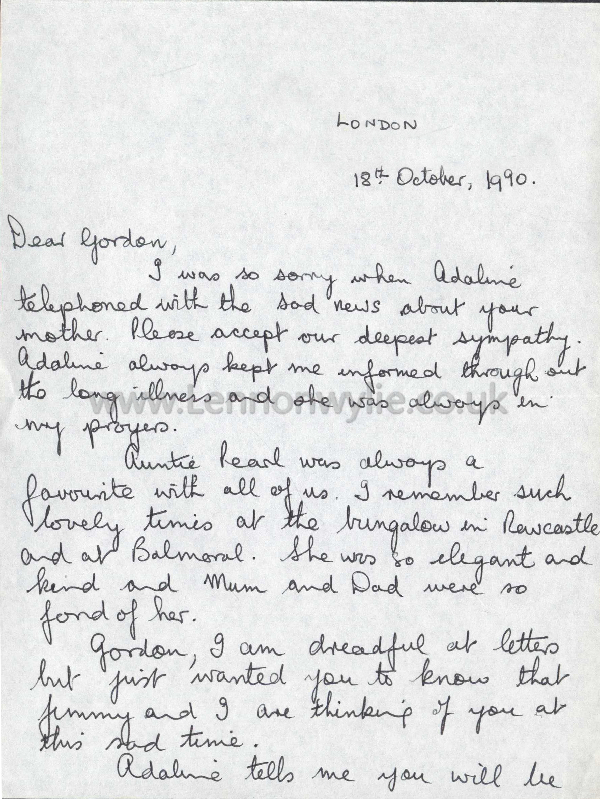 LONDON
18th October, 1990.
Dear Gordon,
I was so sorry when Adaline
telephoned with the sad news about your
mother. Please accept our deepest sympathy.
Adaline always kept me informed through out
the long illness and she was always in
www.Lennonwylie.co.uk
my prayers.
Auntie Pearl was always a
favourite with all of us. I remember such
lovely times at the bungalow in Newcastle
and at Balmoral. She was so elegant and
kind and Mum and Dad were so
fond of her.
Gordon, I am dreadful at letters
but just wanted you to know that
Jimmy and I are thinking of you at
this sad time.
Adaline tells me you will be